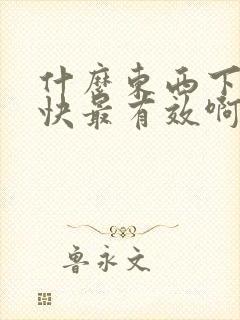 什麼東西下
快最有效啊
魯永文